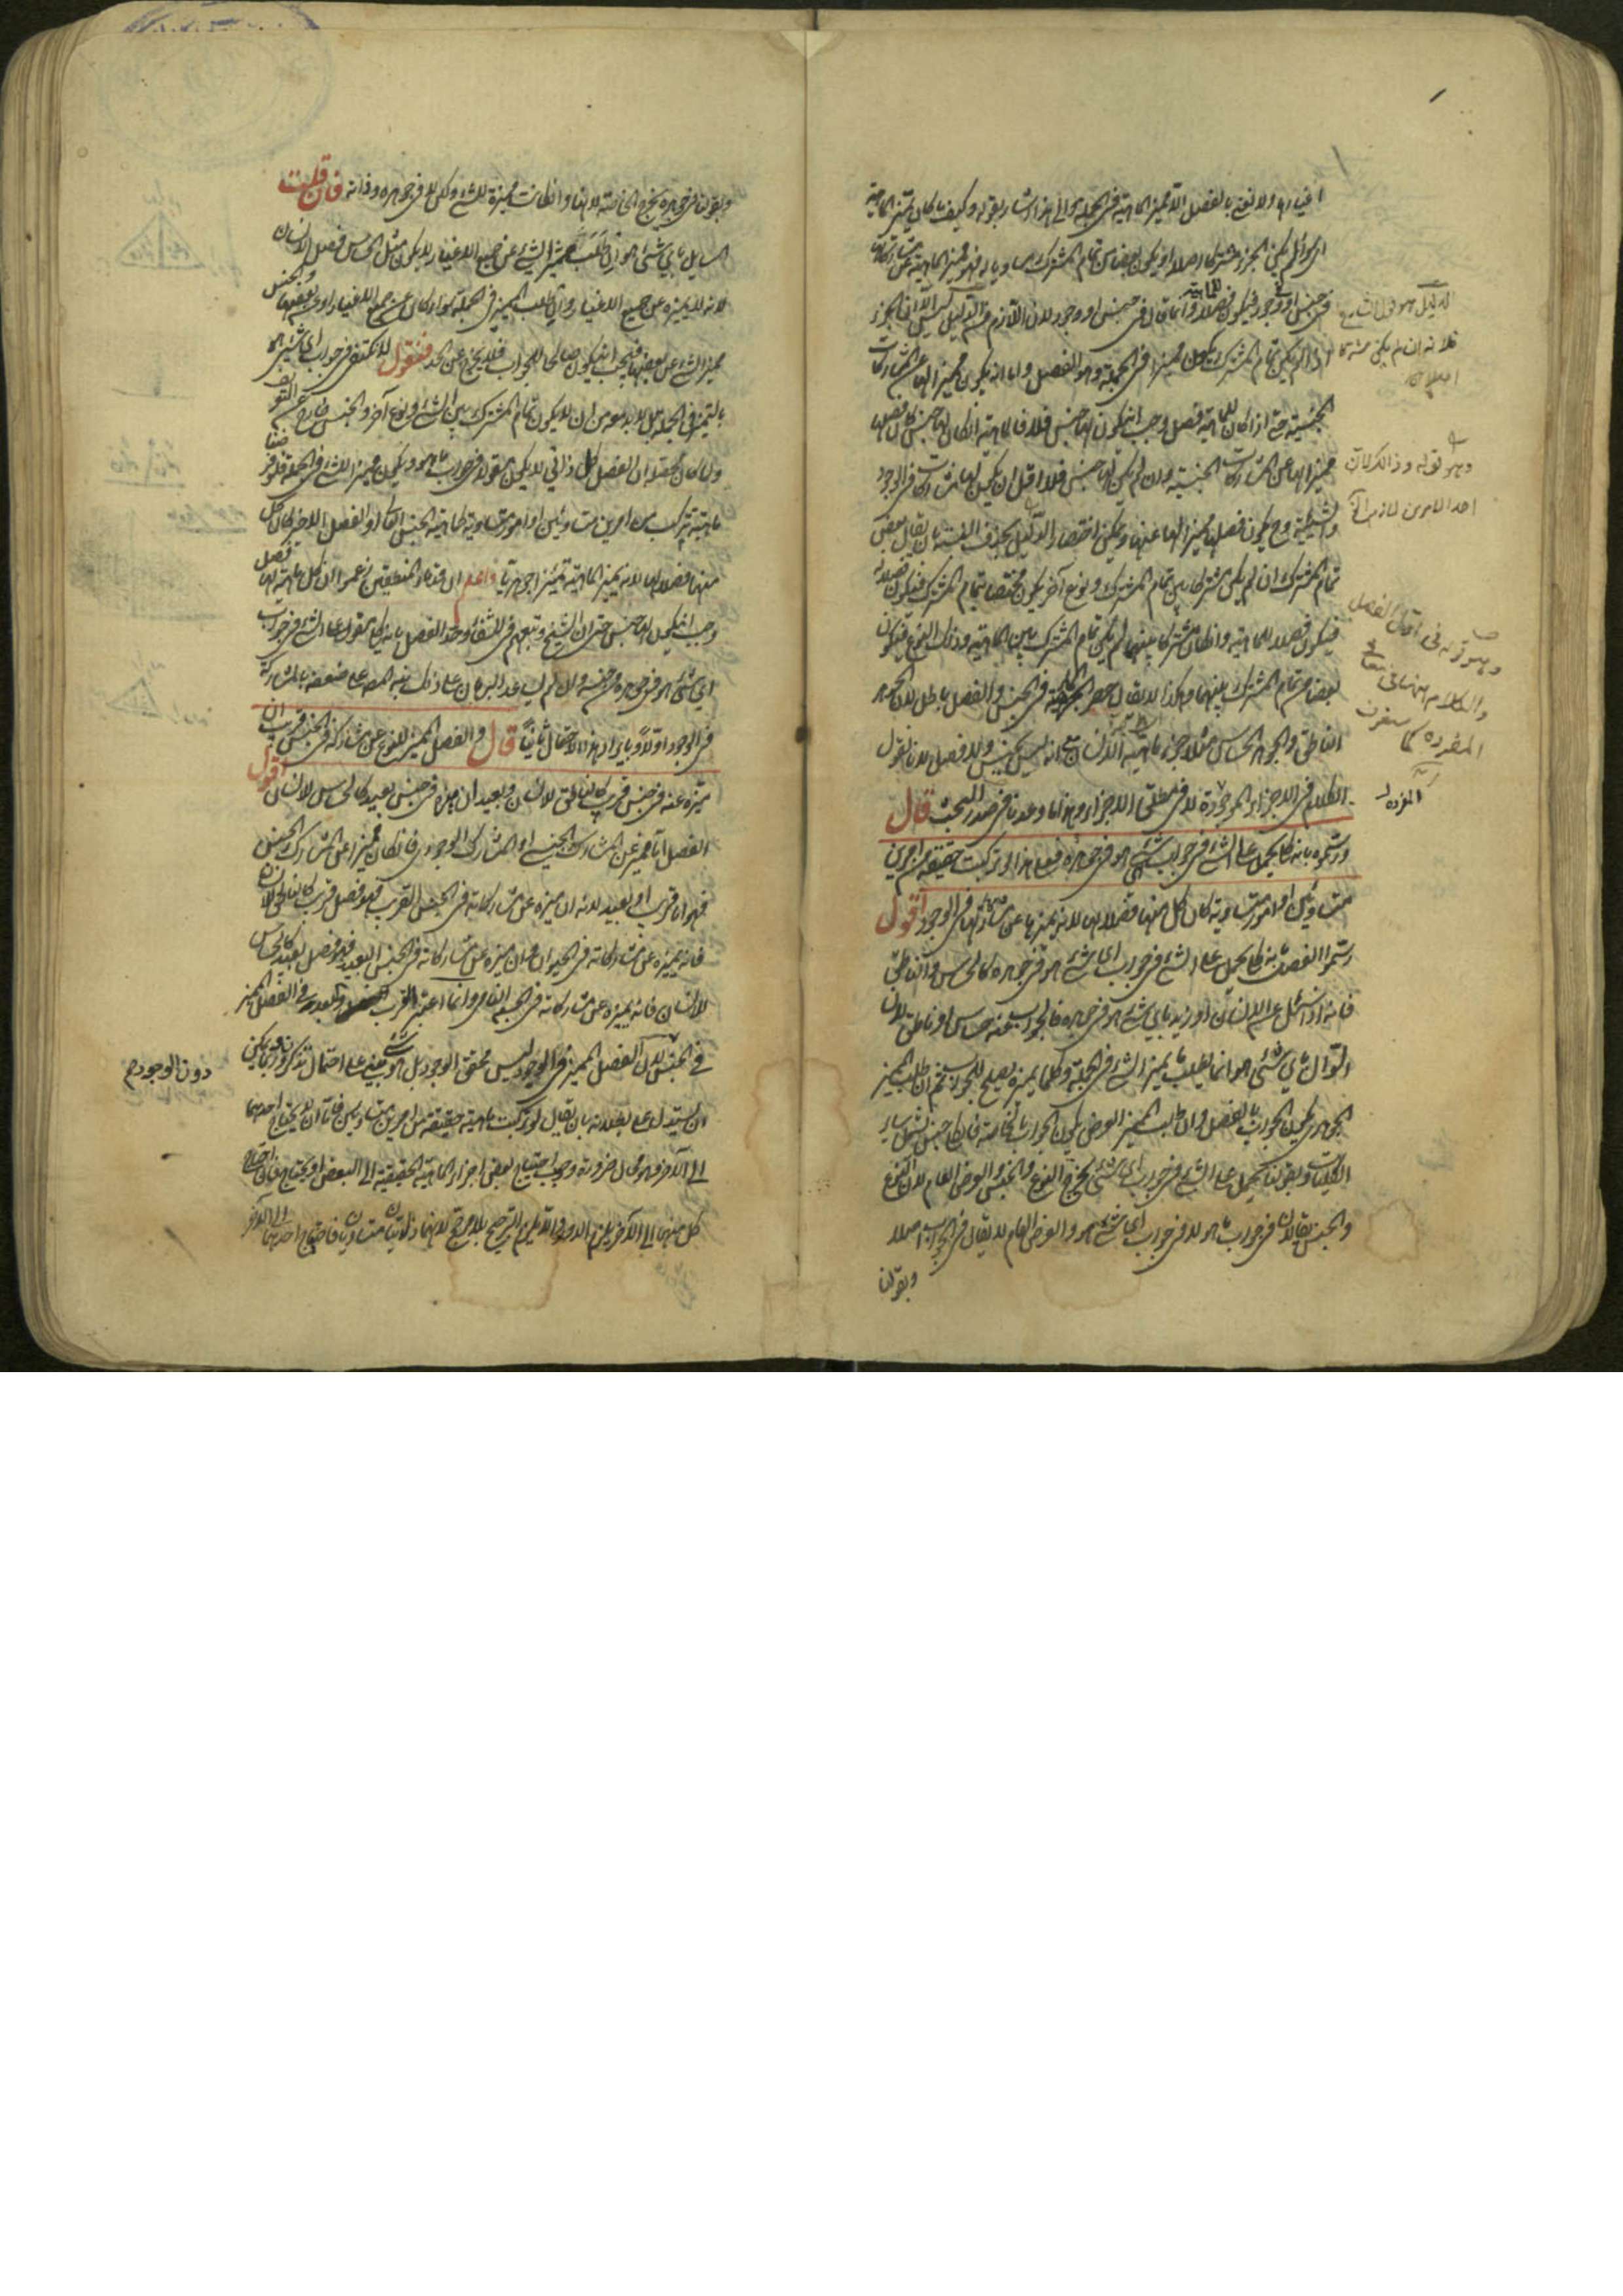 اغيارها ولا نعنى بالفصل الا مميز الماهية فى الجملة والى هذا اشار بقوله وكيف ما كان يميز الماهية
اى سواء لم يكن الجزء مشتركا اصلا او يكون بعضا من تمام المشترك مساويا له فهو مميز الماهية عن مشاركاتها
فى جنس او وجود فيكون فصلا للماهية وانما قال فى جنس او وجود لان اللازم من الدليل ليس الا ان الجزء
اذا لم يكن تمام المشترك يكون مميزا فى الجملة وهو الفصل واما انه يكون مميزا لها عن المشاركات
الجنسية حتى اذا كان للماهية فصل وجب ان يكون لها جنس فلا فالماهية ان كان لها جنس كان فصلها
مميزا لها عن المشاركات الجنسية وان لم يكن لها جنس فلا اقل ان يكون لها مشاركات فى الوجود
والشيئية وح يكون فصلها مميزا لها عنها ويمكن اختصار الدليل بحذف النسب بان يقال بعض
تمام المشترك ان لم يكن مشتركا بين تمام المشترك ونوع آخر يكون مختصا بتمام المشترك فيكون فصلا له
فيكون فصلا للماهية وان كان مشتركا بينهما لم يكن تمام المشترك بين الماهية وذلك النوع فيكون
بعضا من تمام المشترك بينهما وهكذا لا يقال حصر جزء الماهية فى الجنس والفصل باطل لان الجوهر
الناطق والجوهر الحساس مثلا جزء ماهية الانسان مع انه ليس بجنس ولا فصل لانا نقول
الكلام فى الاجزاء المفردة لا فى مطلق الاجزاء وهذا ما وعدناه فى صدر البحث قال
ورسموه بانه كلى يحمل على الشئ فى جواب اى شئ هو فى جوهره فعلى هذا لو تركبت حقيقة من امرين
متساويين او امور متساوية كان كل منها فصلا لها لانه يميزها عن مشاركها فى الوجود اقول
رسموا الفصل بانه كلى يحمل على الشئ فى جواب اى شئ هو فى جوهره كالحساس والناطق
فانه اذا سئل عن الانسان او زيد باى شئ هو فى جوهره فالجواب عنه حساس او ناطق لان
السؤال باى شئ هو انما يطلب به ما يميز الشئ فى الجملة وكلما يميزه يصلح للجواب ثم ان طلب المميز
الجوهرى يكون الجواب بالفصل وان طلب المميز العرضى يكون الجواب بالخاصة فالكلى جنس يشمل ساير
الكليات وبقولنا يحمل على الشئ فى جواب اى شئ يخرج النوع والجنس والعرض العام لان النوع
والجنس يقالان فى جواب ما هو لا فى جواب اى شئ هو والعرض العام لا يقال فى الجواب اصلا
وبقولنا
الدليل هو قول الشارح
فلانه ان لم يكن مشتركا
اصلا
احد الامرين لازم
المفردة كما ستعرف
وبقولنا فى جوهره يخرج الخاصة لانها وان كانت مميزة للشئ ولكن لا فى جوهره وذاته فان قلت
السايل باى شئ هو ان طلب مميز الشئ عن جميع الاغيار لا يكون مثل الحساس فصل الانسان
لانه لا يميزه عن جميع الاغيار وان طلب المميز فى الجملة سواء كان عن جميع الاغيار او عن بعضها فالجنس
مميز الشئ عن بعضها فيجب ان يكون صالحا للجواب فلا يخرج عن الحد فنقول لا يكتفى فى جواب اى شئ هو
بالتميز فى الجملة بل لا بد معه من ان لا يكون تمام المشترك بين الشئ ونوع آخر والجنس خارج عن التعريف
ولما كان محصله ان الفصل كلى ذاتى لا يكون مقولا فى جواب ما هو ويكون مميزا للشئ فى الجملة فلو فرضنا
ماهية تركبت من امرين متساويين او امور متساوية كماهية الجنس العالى او الفصل الاخير كان كل
منها فصلا لها لانه يميز الماهية تميزا جوهريا واعلم ان قدماء المنطقيين زعموا ان كل ماهية لها فصل
وجب ان يكون لها جنس حتى ان الشيخ تبعهم فى الشفاء وحد الفصل بانه كلى مقول على الشئ فى جواب
اى شئ هو فى جوهره من جنسه ولم يساعد البرهان على ذلك نبه المص على ضعفه بالمشاركة
فى الوجود اولا وبايراد هذا الاحتمال ثانيا قال والفصل المميز للنوع عن مشاركه فى الجنس قريب ان
ميزه عنه فى جنس قريب كالناطق للانسان وبعيد ان ميزه فى جنس بعيد كالحساس للانسان اقول
الفصل اما مميز عن المشارك الجنسى او المشارك الوجودى فان كان مميزا عن المشارك الجنسى
فهو اما قريب او بعيد لانه ان ميزه عن مشاركاته فى الجنس القريب فهو فصل قريب كالناطق للانسان
فانه يميزه عن مشاركاته فى الحيوان وان ميزه عن مشاركاته فى الجنس البعيد فهو فصل بعيد كالحساس
للانسان فانه يميزه عن مشاركاته فى الجسم النامى وانما اعتبر القرب والبعد فى الفصل المميز
فى الجنس لان الفصل المميز فى الوجود ليس محقق الوجود بل هو شئ مبنى على احتمال تذكر وربما يمكن
ان يستدل على بطلانه بان يقال لو تركبت ماهية حقيقية من امرين متساويين فاما ان لا يحتاج احدهما
الى الآخر وهو محال ضرورة وجوب احتياج بعض اجزاء الماهية الحقيقية الى البعض او يحتاج فان احتاج
كل منهما الى الآخر يلزم الدور والا يلزم الترجيح بلا مرجح لانهما ذاتيان متساويان فاحتياج احدهما الى الآخر
دون الوجود م